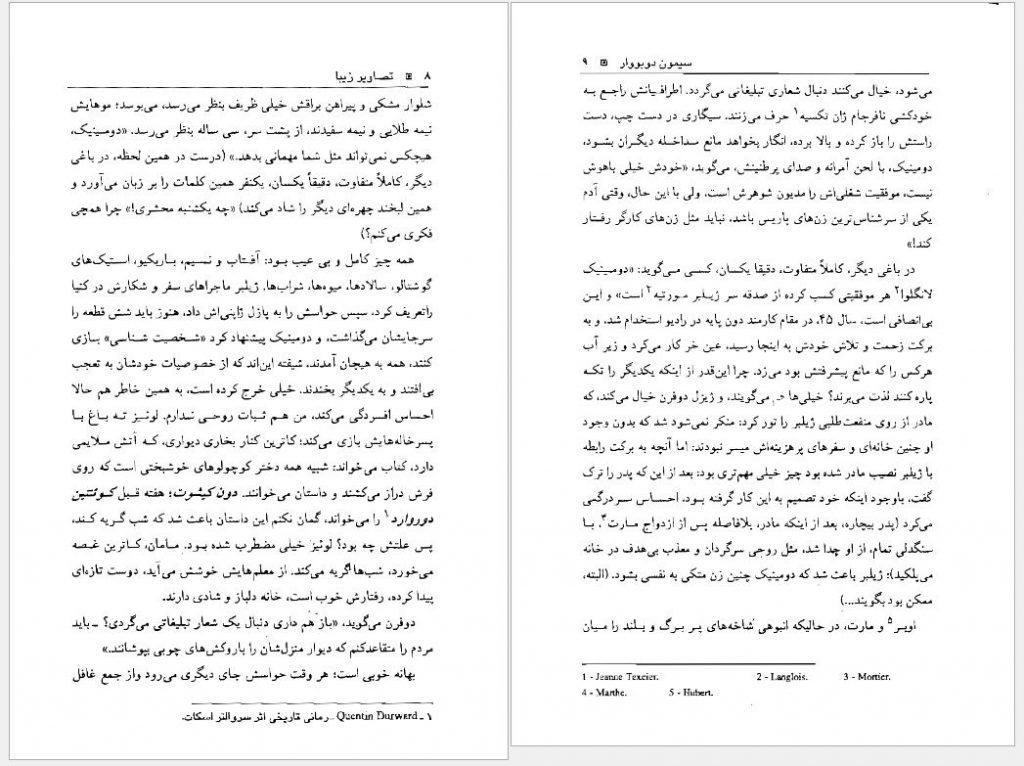 ۸ ▣ تصاویر زیبا
شلوار مشکی و پیراهن براقش خیلی ظریف بنظر می‌رسد، می‌بوسد؛ موهایش
نیمه طلایی و نیمه سفیدند، از پشت سر، سی ساله بنظر می‌رسد. «دومینیک،
هیچکس نمی‌تواند مثل شما مهمانی بدهد.» (درست در همین لحظه، در باغی
دیگر، کاملاً متفاوت، دقیقاً یکسان، یکنفر همین کلمات را بر زبان می‌آورد و
همین لبخند چهره‌ای دیگر را شاد می‌کند) «چه یکشنبه محشری!» چرا همچی
فکری می‌کنم؟)
همه چیز کامل و بی عیب بود: آفتاب و نسیم، باربکیو، استیک‌های
گوشتالو، سالادها، میوه‌ها، شراب‌ها. ژیلبر ماجراهای سفر و شکارش در کنیا
راتعریف کرد، سپس حواسش را به پازل ژاپنی‌اش داد، هنوز باید شش قطعه را
سرجایشان می‌گذاشت، و دومینیک پیشنهاد کرد «شخصیت شناسی» بازی
کنند، همه به هیجان آمدند، شیفته این‌اند که از خصوصیات خودشان به تعجب
بی‌افتند و به یکدیگر بخندند. خیلی خرج کرده است، به همین خاطر هم حالا
احساس افسردگی می‌کند، من هم ثبات روحی ندارم. لوئیز ته باغ با
پسرخاله‌هایش بازی می‌کند؛ کاترین کنار بخاری دیواری، که آتش ملایمی
دارد، کتاب می‌خواند: شبیه همه دختر کوچولوهای خوشبختی است که روی
فرش دراز می‌کشند و داستان می‌خوانند. دون کیشوت؛ هفته قبل کوئنتین
دوروارد ۱ را می‌خواند، گمان نکنم این داستان باعث شد که شب گریه کند،
پس علتش چه بود؟ لوئیز خیلی مضطرب شده بود. مامان، کاترین غصه
می‌خورد، شب‌ها گریه می‌کند. از معلم‌هایش خوشش می‌آید، دوست تازه‌ای
پیدا کرده، رفتارش خوب است، خانه دلباز و شادی دارند.
دوفرن می‌گوید، «باز هم داری دنبال یک شعار تبلیغاتی می‌گردی؟ ـ باید
مردم را متقاعدکنم که دیوار منزل‌شان را باروکش‌های چوبی بپوشانند.»
بهانه خوبی است؛ هر وقت حواسش جای دیگری می‌رود واز جمع غافل
۱ ـ Quentin Durward ـ رمانی تاریخی اثر سروالتر اسکات.
سیمون دوبووار ▣ ۹
می‌شود، خیال می‌کنند دنبال شعاری تبلیغاتی می‌گردد. اطرافیانش راجع به
خودکشی نافرجام ژان تکسیه ۱ حرف می‌زنند. سیگاری در دست چپ، دست
راستش را باز کرده و بالا برده، انگار بخواهد مانع مداخله دیگران بشود،
دومینیک، با لحن آمرانه و صدای پرطنینش، می‌گوید، «خودش خیلی باهوش
نیست، موفقیت شغلی‌اش را مدیون شوهرش است، ولی با این حال، وقتی آدم
یکی از سرشناس‌ترین زن‌های پاریس باشد، نباید مثل زن‌های کارگر رفتار
کند!»
در باغی دیگر، کاملاً متفاوت، دقیقا یکسان، کسی می‌گوید: «دومینیک
لانگلوا ۲ هر موفقیتی کسب کرده از صدقه سر ژیلبر مورتیه ۲ است» و این
بی‌انصافی است، سال ۴۵، در مقام کارمند دون پایه در رادیو استخدام شد، و به
برکت زحمت و تلاش خودش به اینجا رسید، عین خر کار می‌کرد و زیر آب
هرکس را که مانع پیشرفتش بود می‌زد. چرا این‌قدر از اینکه یکدیگر را تکه
پاره کنند لذت می‌برند؟ خیلی‌ها می‌گویند، و ژیزل دوفرن خیال می‌کند، که
مادر از روی منفعت‌طلبی ژیلبر را تور کرد: منکر نمی‌شود شد که بدون وجود
او چنین خانه‌ای و سفرهای پرهزینه‌اش میسر نبودند: اما آنچه به برکت رابطه
با ژیلبر نصیب مادر شده بود چیز خیلی مهم‌تری بود: بعد از این که پدر را ترک
گفت، باوجود اینکه خود تصمیم به این کار گرفته بود، احساس سردرگمی
می‌کرد (پدر بیچاره، بعد از اینکه مادر، بلافاصله پس از ازدواج مارت ۴، با
سنگدلی تمام، از او جدا شد، مثل روحی سرگردان و معذب بی‌هدف در خانه
می‌پلکید)؛ ژیلبر باعث شد که دومینیک چنین زن متکی به نفسی بشود. (البته،
ممکن بود بگویند...)
اوبر ۵ و مارت، در حالیکه انبوهی شاخه‌های پر برگ و بلند را میان
1 - Jeanne Texcier. 2 - Langlois. 3 - Mortier.
4 - Marthe. 5 - Hubert.